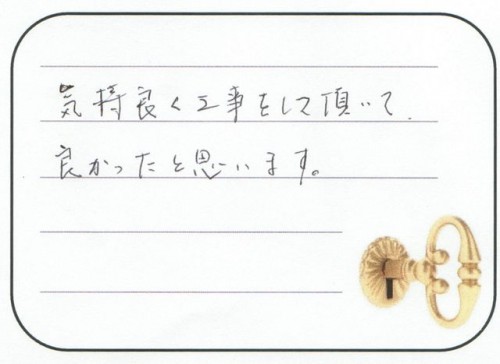 気持良く工事をして頂いて.
良かったと思います。